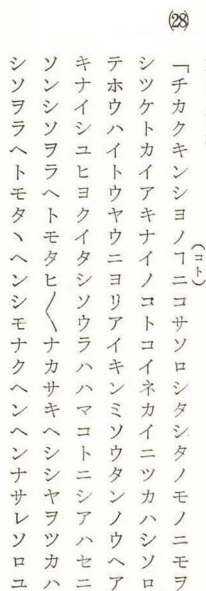 (28)
「チカクキンシヨノヿ(コト)ニコサソロシタシタノモノニモヲ
シツケトカイアキナイノコトコイネカイニツカハシソロ
テホウハイトウヤウニヨリアイキンミソウタンノウヘア
キナイシユヒヨクイタシソウラハハマコトニシアハセニ
ソンシソヲラヘトモタヒ〳〵ナカサキヘシシヤヲツカハ
シソヲラヘトモタヽヘンシモナクヘンヘンナサレソロユ